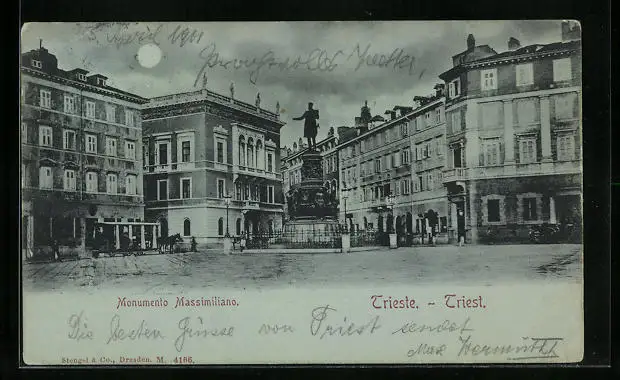 5 April 1901
Monumento Massimiliano.
Trieste. - Triest.
Die besten Grüsse von Triest sendet
Max
Stengel & Co., Dresden. M. 4166.